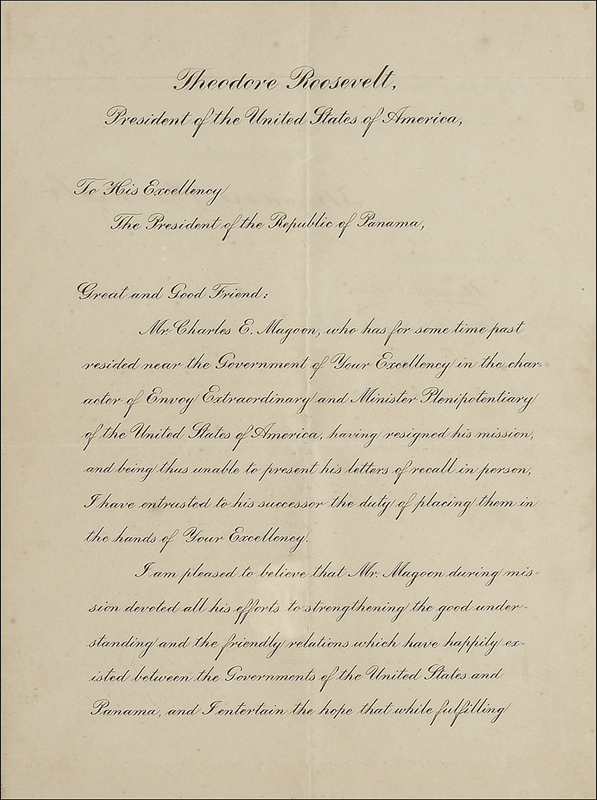 Theodore Roosevelt,
President of the United States of America,
To His Excellency
The President of the Republic of Panama,
Great and Good Friend:
Mr. Charles E. Magoon, who has for some time past
resided near the Government of Your Excellency in the char-
acter of Envoy Extraordinary and Minister Plenipotentiary
of the United States of America, having resigned his mission,
and being thus unable to present his letters of recall in person,
I have entrusted to his successor the duty of placing them in
the hands of Your Excellency.
I am pleased to believe that Mr. Magoon during mis-
sion devoted all his efforts to strengthening the good under-
standing and the friendly relations which have happily ex-
isted between the Governments of the United States and
Panama, and I entertain the hope that while fulfilling